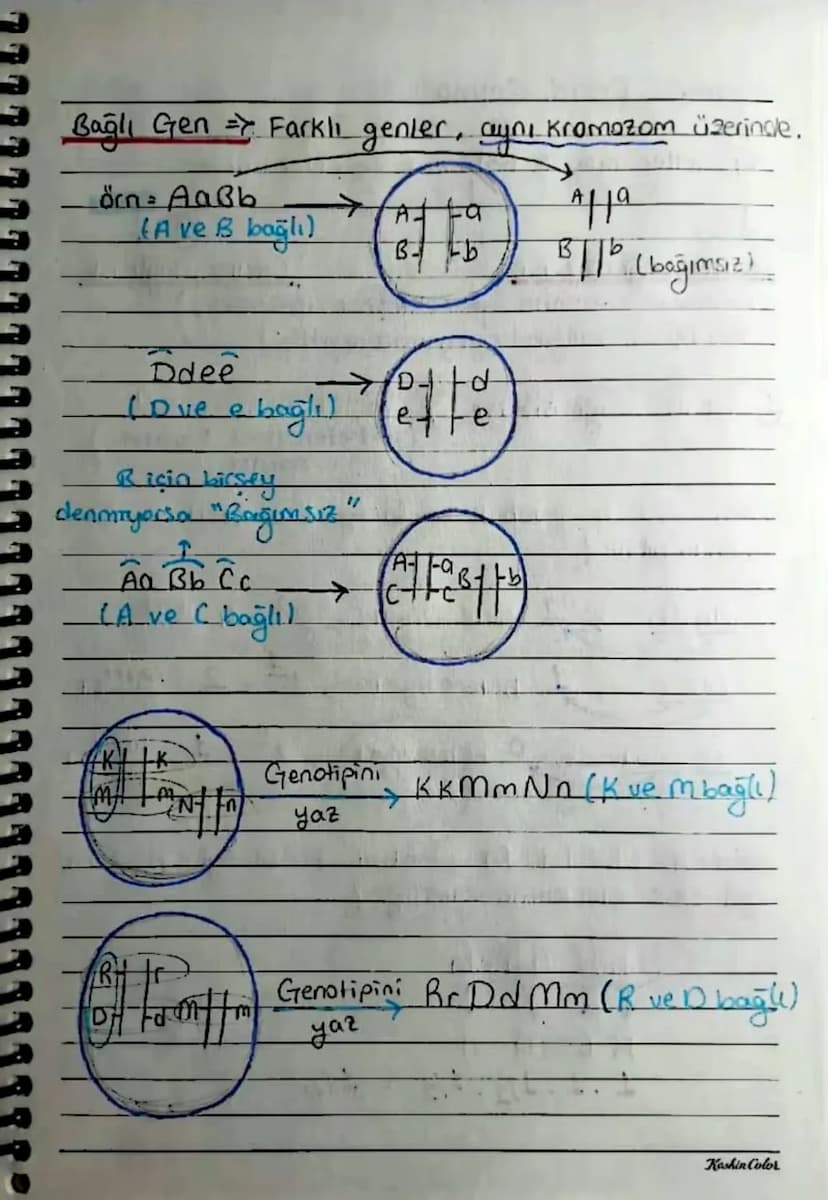 Bağlı Gen => Farklı genler, aynı kromozom üzerinde.
örn = AaBb → A a A a
(A ve B bağlı) B b B b (bağımsız)
Ddee → D d
(D ve e bağlı) e e
B için birşey
denmiyorsa "Bağımsız"
Aa Bb Cc → A a B b
(A ve C bağlı) C c
K k Genotipini → KkMmNn (K ve M bağlı)
M m N n yaz
R r Genotipini → RrDdMm (R ve D bağlı)
D d m m yaz
Kashin Color